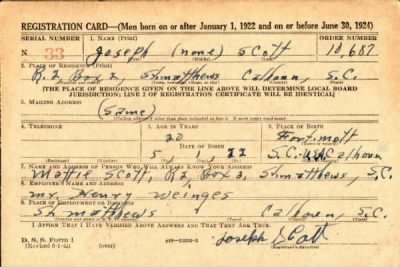 REGISTRATION CARD—(Men born on or after January 1, 1922 and on or before June 30, 1924)
SERIAL NUMBER 1. NAME (Print) ORDER NUMBER
N 33 Joseph (none) Scott 10,687
(First) (Middle) (Last)
2. PLACE OF RESIDENCE (Print)
R.2 Box 2, St. matthews Calhoun, S.C.
[THE PLACE OF RESIDENCE GIVEN ON THE LINE ABOVE WILL DETERMINE LOCAL BOARD
JURISDICTION; LINE 2 OF REGISTRATION CERTIFICATE WILL BE IDENTICAL]
3. MAILING ADDRESS
(Same)
4. TELEPHONE 5. AGE IN YEARS 6. PLACE OF BIRTH
20 Fort mott
DATE OF BIRTH
5 1 22 S.C. Calhoun
7. NAME AND ADDRESS OF PERSON WHO WILL ALWAYS KNOW YOUR ADDRESS
Mattie Scott, R2, Box 2, St. matthews, S.C.
8. EMPLOYER'S NAME AND ADDRESS
mr. Henry Weinges
9. PLACE OF EMPLOYMENT OR BUSINESS
St. matthews Calhoun, S.C.
I AFFIRM THAT I HAVE VERIFIED ABOVE ANSWERS AND THAT THEY ARE TRUE.
D. S. S. FORM 1
(Revised 6-1-42) (over)
Joseph Scott